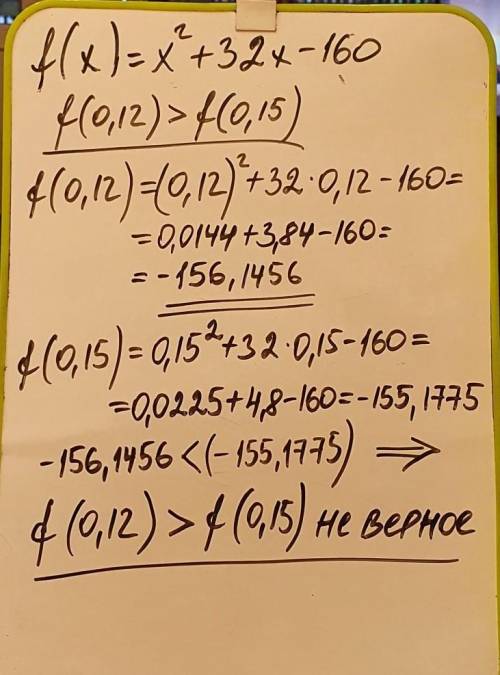 f(x)=x²+32x-160
f(0,12)>f(0,15)
f(0,12)=(0,12)²+32·0,12-160=
=0,0144+3,84-160=
=-156,1456
f(0,15)=0,15²+32·0,15-160=
=0,0225+4,8-160=-155,1775
-156,1456<(-155,1775) ⇒
f(0,12)>f(0,15) не верное